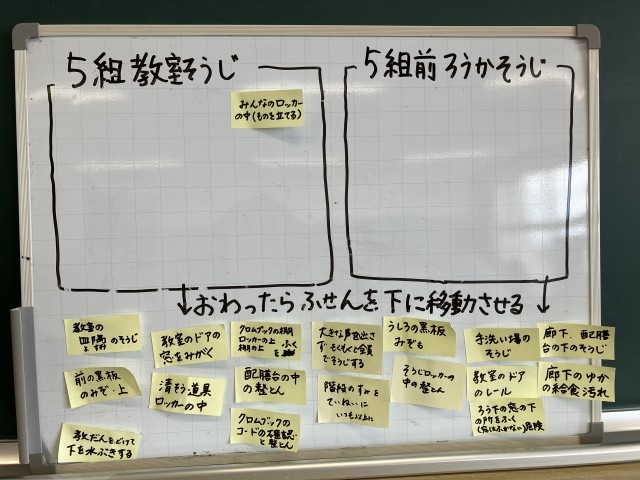 5組教室そうじ
5組前ろうかそうじ
みんなのロッカー
の中(ものを立てる)
おわったらふせんを下に移動させる
教室の
四隅のそうじ
教室のドアの
窓をみがく
クロムブックの棚
ロッカーの上
棚の上 ふく
大きな声を出さ
ずもくもくと全員
でそうじする
うしろの黒板
みぞも
手洗い場の
そうじ
廊下、配膳
台の下のそうじ
前の黒板
のみぞ・上
清そう道具
ロッカーの中
配膳台の中
の整とん
階段のすみを
ていねいに
いつも以上に
そうじロッカーの
中の整とん
教室のドア
のレール
廊下のゆか
の給食汚れ
教だんをどけて
下を水ぶきする
クロムブックの
コードの確認
と整とん
ろう下の窓の下
をふく
危険